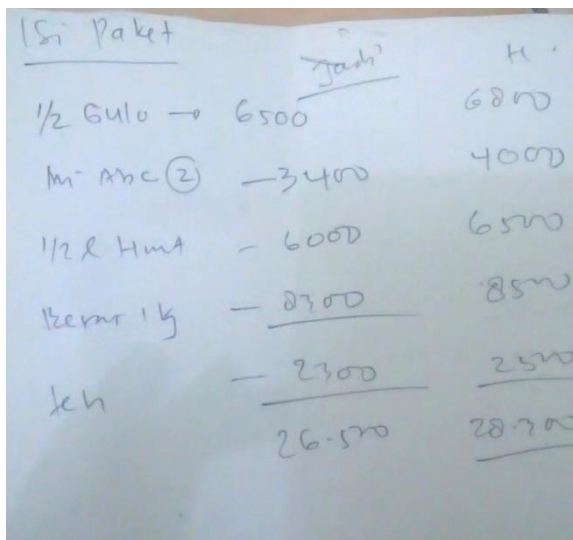 Isi Paket
Jadi H.
1/2 Gulo → 6500 6800
Mi ABC ② — 3400 4000
1/2 l - 6000 6500
Beras 1 kg — 8300 8500
teh — 2300 2500
26.500 28.300